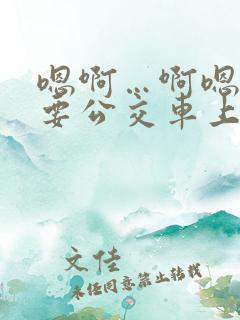 嗯啊…啊嗯
要公交车上
文佳
未经同意禁止转载